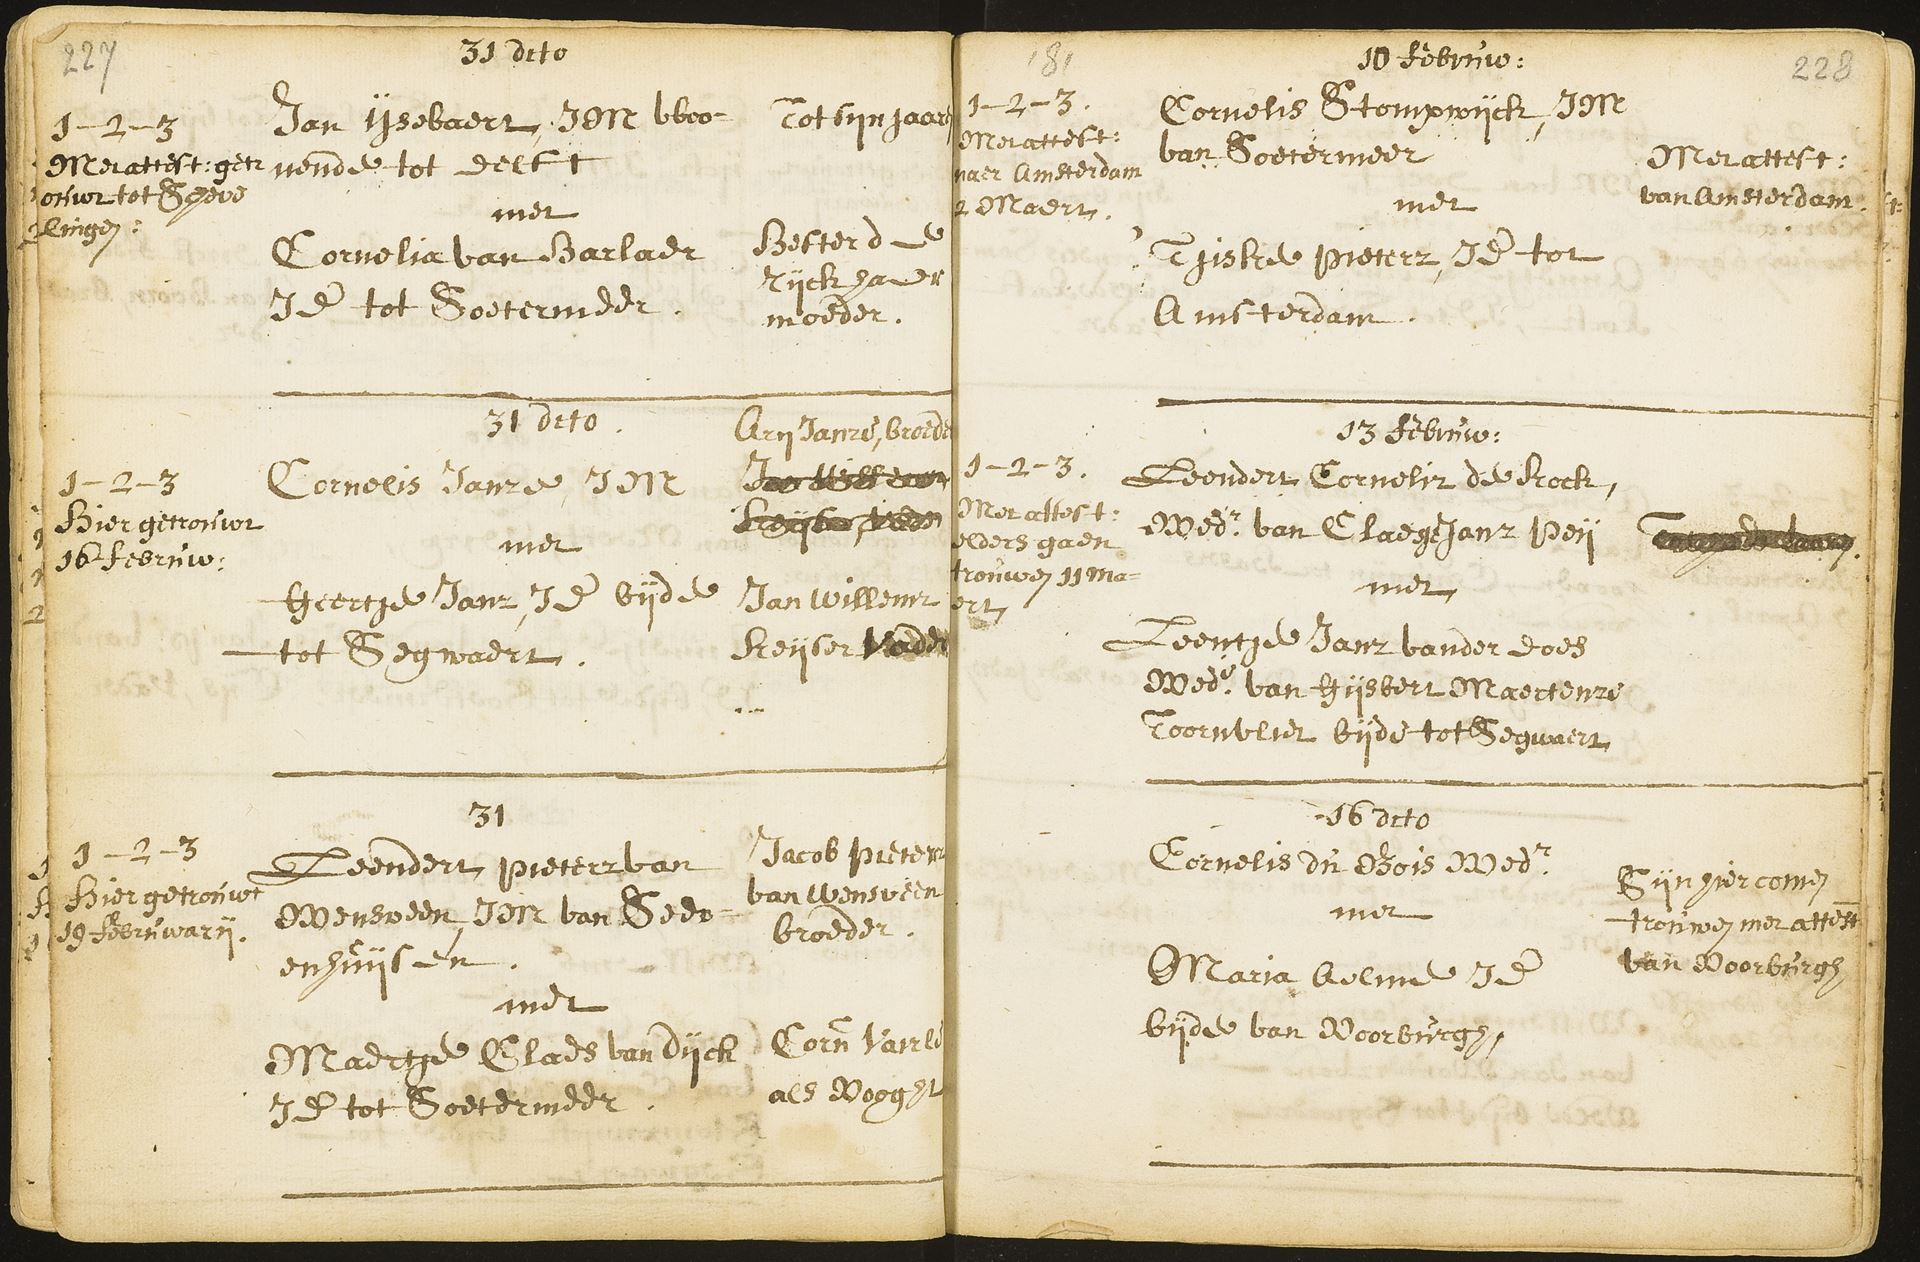 227
31 dito
1-2-3
Met attest: getr
ouwt tot Scheve
lingen:
Jan Ijsebaert, JM woo-
nende tot Delft
met
Cornelia van Barlaer
JD tot Soetermeer.
Tot sijn jaar
Hester de
Rijck haer
moeder.
31 dito.
1-2-3
Hier getrouwt
16 Februw:
Cornelis Janze, JM
met
Geertje Janz, JD bijde
tot Segwaert.
Arij Janze, broede
Jan Willemz
Keijser, Vader
Jan Willemz
Keijser Vader
31
1-2-3
Hier getrouwt
19 Februwarij.
Leendert Pieterz van
Wensveen, JM van Seev-
enhuijsen.
met
Maertje Claes van Dijck
JD tot Soetermeer.
Jacob Pieterz
van Wensveen
broeder.
Corn
als Vooght
181
228
10 Februw:
1-2-3.
Met attest:
naer Amsterdam
2 Maert.
Cornelis Stompwijck, JM
van Soetermeer
met
Tjiske Pieterz, JD tot
Amsterdam.
Met attest:
van Amsterdam.
13 Februw:
1-2-3.
Met attest:
elders gaen
trouwen 11 Ma-
ert
Leendert Cornelisz de Kock,
Wedr. van Claegje Janz Peij
met
Leentje Janz vander Does
Wede. van Gijsbert Maertenze
Toornvliet bijde tot Segwaert
16 dito
Cornelis du Bois Wedr.
met
Maria JD
bijde van Voorburgh,
Sijn hier comen
trouwen met attest
van Voorburgh